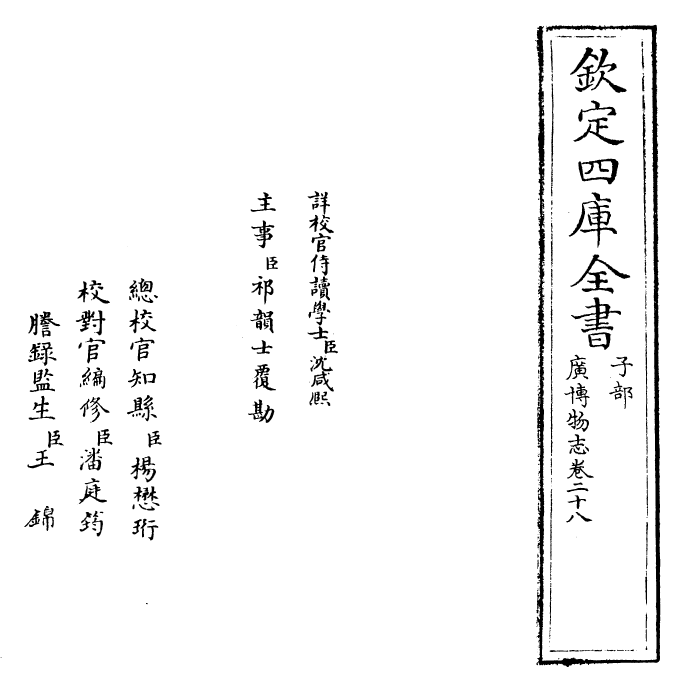 欽定四庫全書
子部
廣博物志卷二十八
詳校官侍讀學士臣沈咸熙
主事臣祁韻士覆勘
總校官知縣臣楊懋珩
校對官編修臣潘庭筠
謄錄監生臣王錦